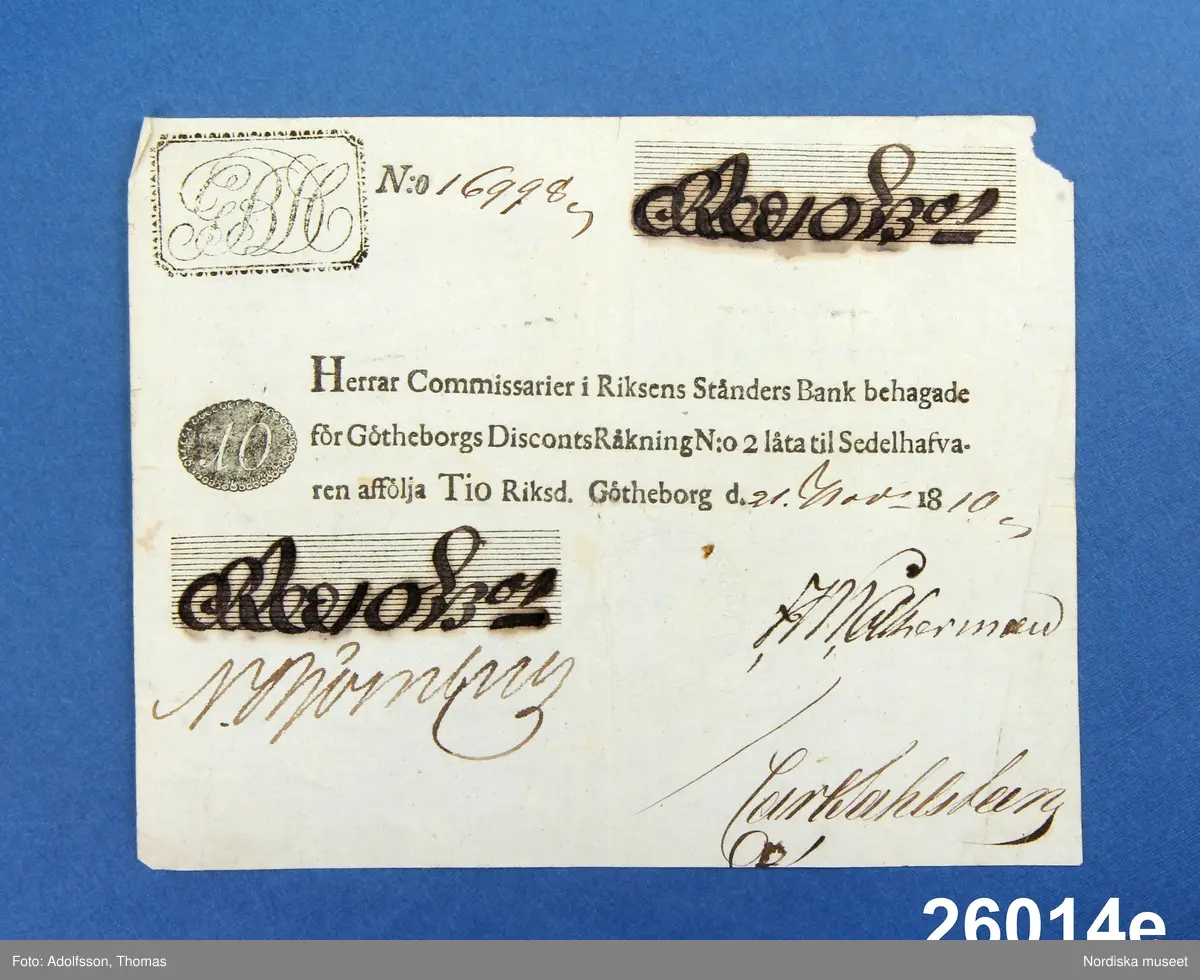 N:o 16998
Herrar Commissarier i Riksens Stånders Bank behagade
för Götheborgs Disconts Råkning N:o 2 låta til Sedelhafva-
10
ren affölja Tio Riksd. Götheborg d. 21. Nov. 1810
N. Björnberg
Carl Dahlsberg
26014e
Foto: Adolfsson, Thomas
Nordiska museet